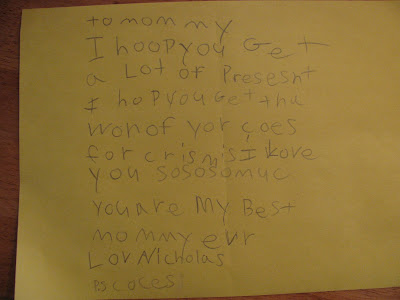 to mommy
I hoop you Get
a Lot of Presesnt
I hop you Get thu
won of yor çoes
for crismis I kove
you sososomuc
you are My Best
mommy evr
Lov Nicholas
PS coces